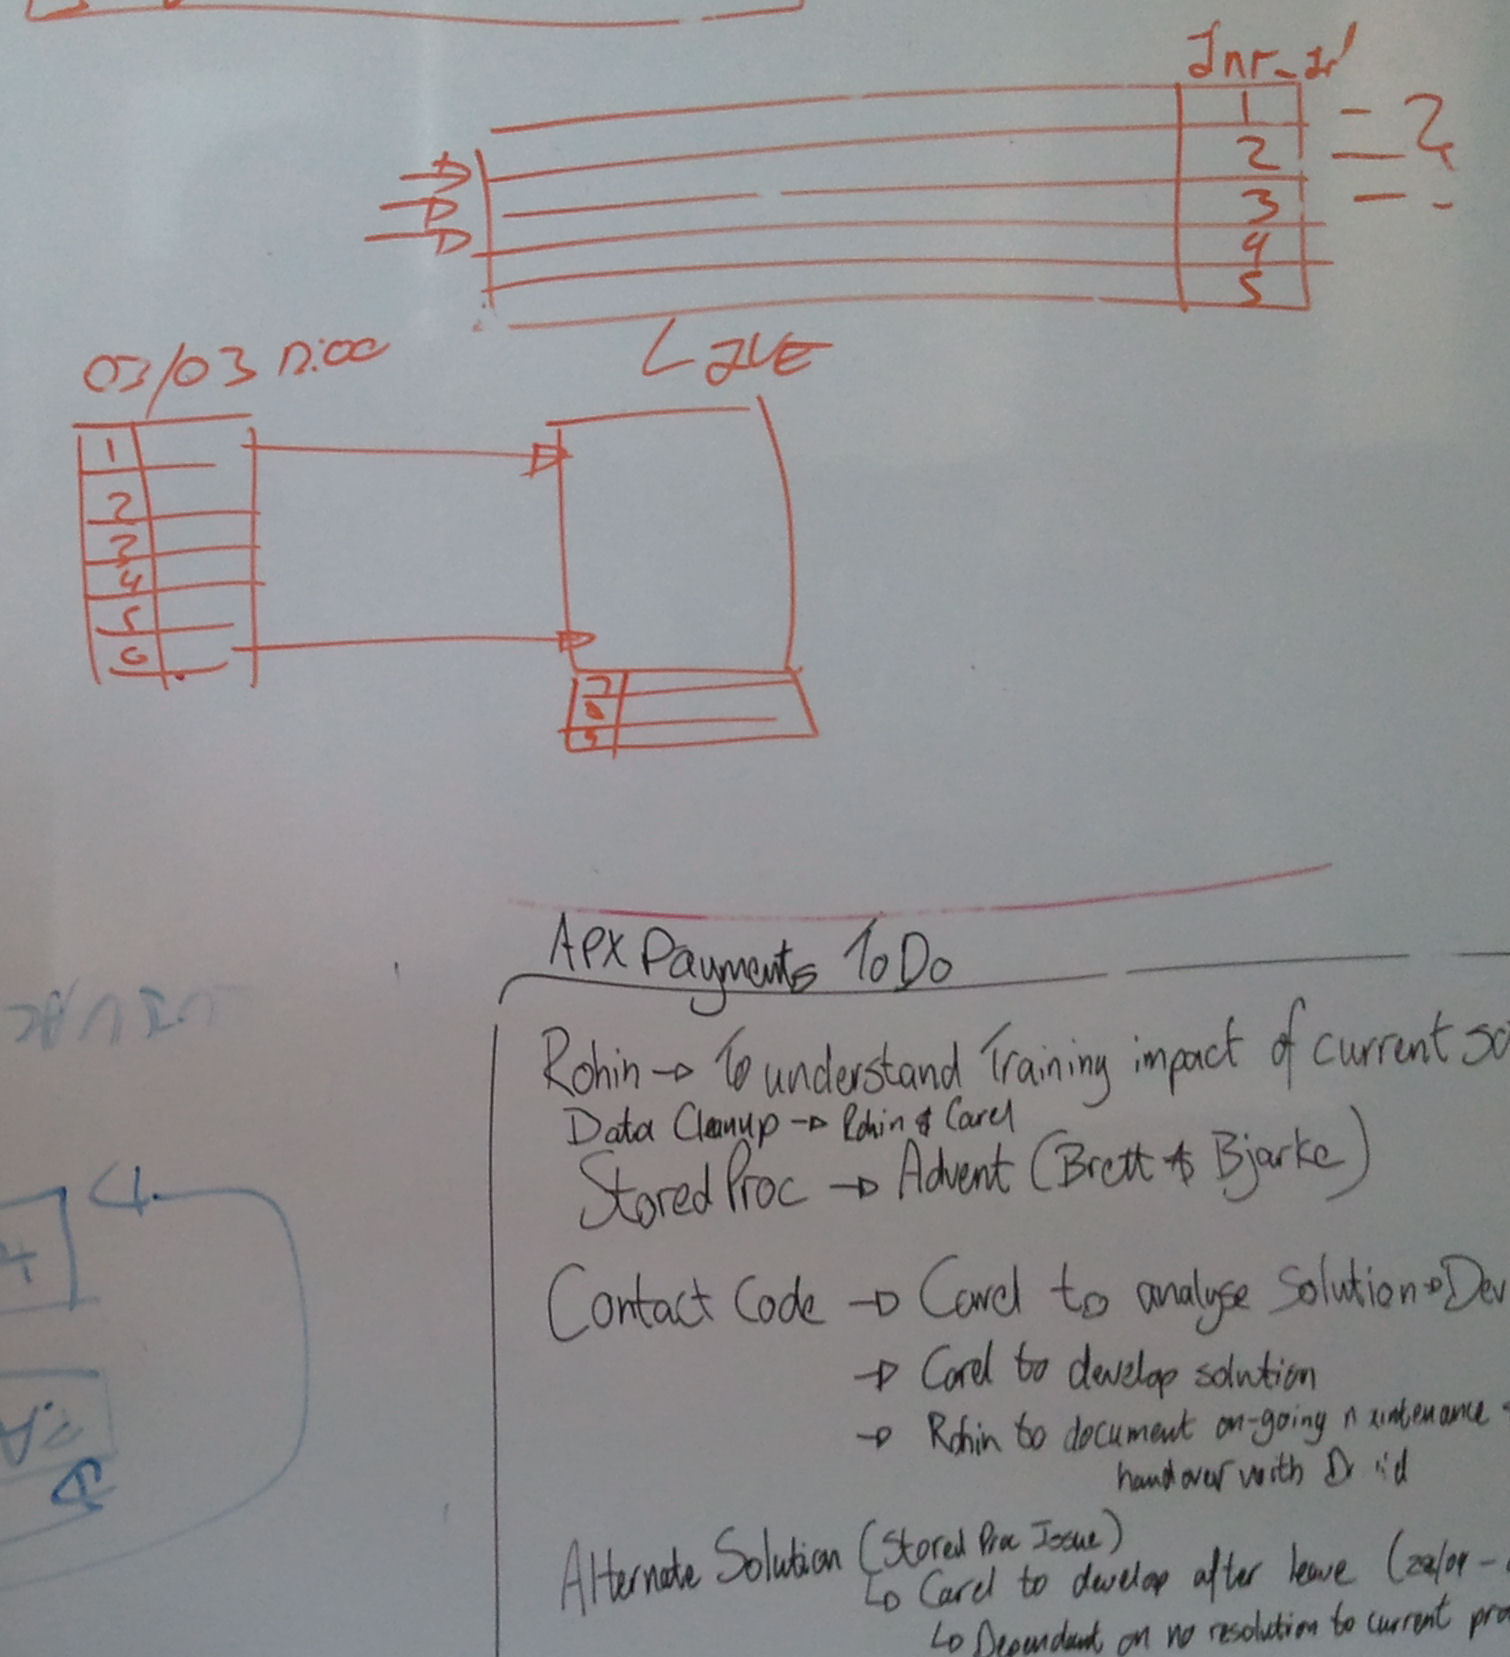 1
2
3
4
5
03/03
LIVE
1
2
3
4
5
6
7
8
9
APX Payments To Do
Rohin → To understand Training impact of current
Data Cleanup → Rohin & Carel
Stored Proc → Advent (Brett & Bjarke)
Contact Code → Carel to analyse solution → Dev
→ Carel to develop solution
→ Rohin to document on-going maintenance
handover with
Alternate Solution (Stored Proc Issue)
↳ Carel to develop after leave
↳ Dependant on no resolution to current